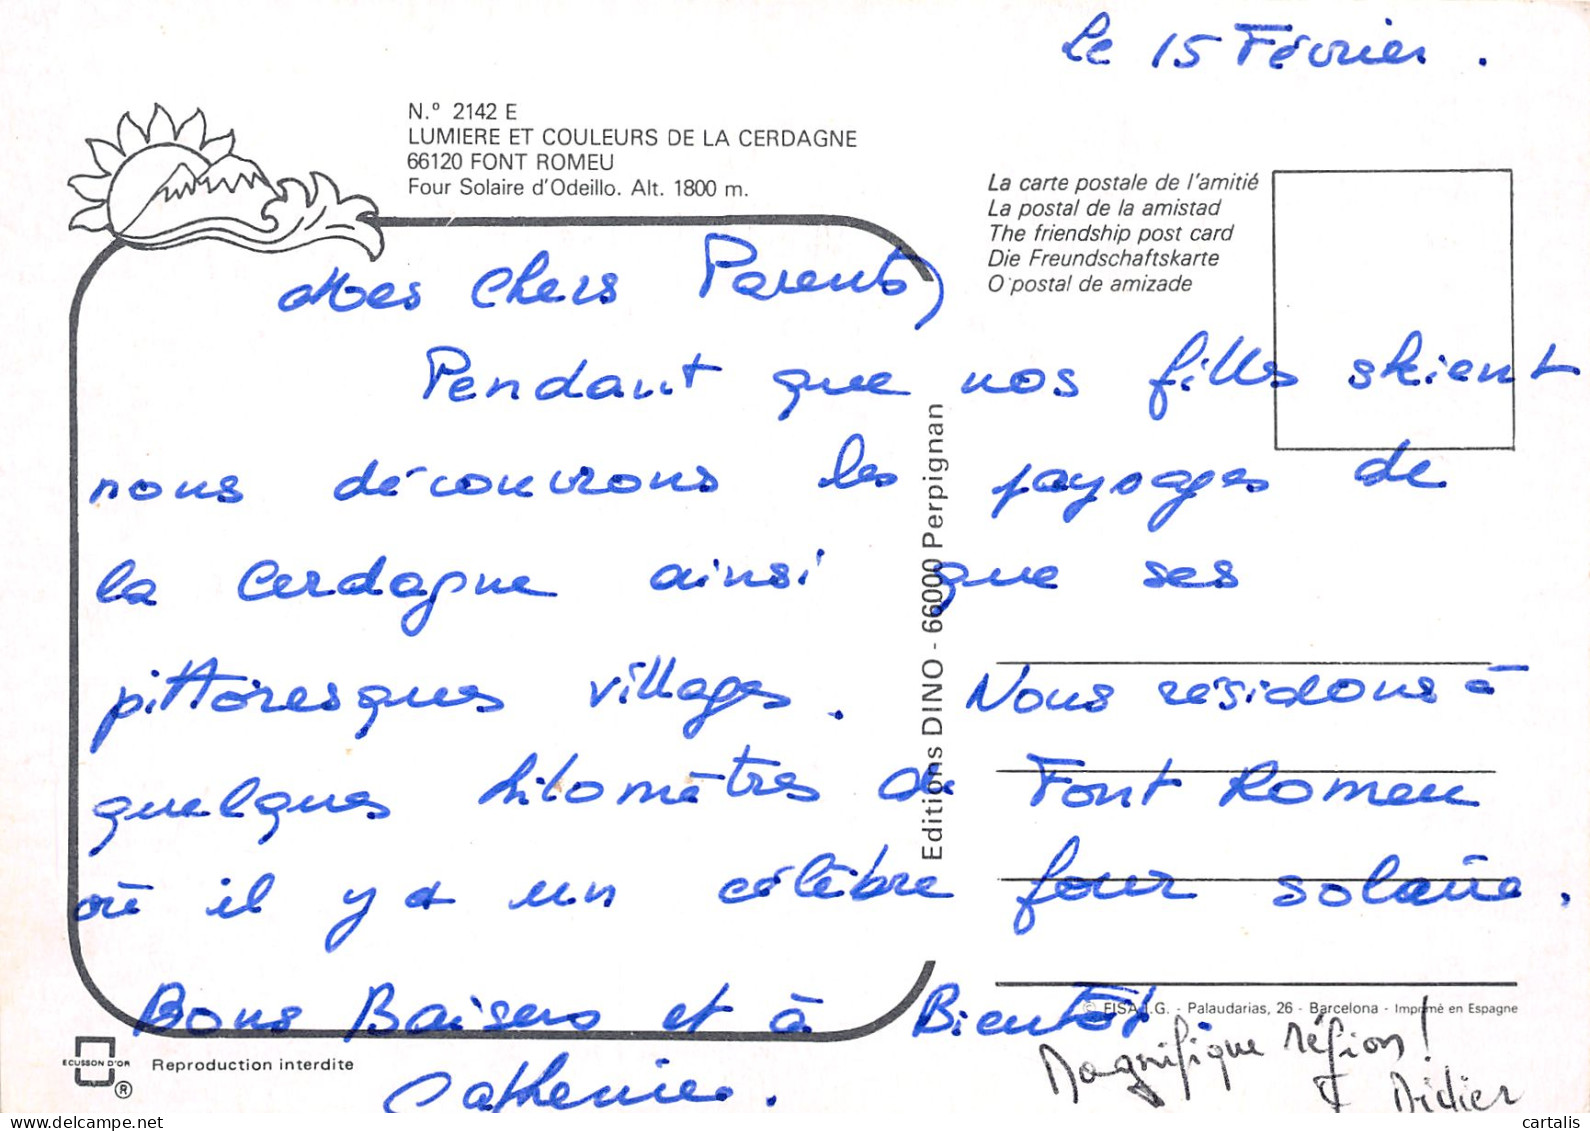 le 15 Février .
N.º 2142 E
LUMIERE ET COULEURS DE LA CERDAGNE
66120 FONT ROMEU
Four Solaire d'Odeillo. Alt. 1800 m.
La carte postale de l'amitié
La postal de la amistad
The friendship post card
Die Freundschaftskarte
O postal de amizade
Mes Chers Parents,
Pendant que nos filles skient
nous découvrons les paysages de
la Cerdagne ainsi que ses
pittoresques villages. Nous résidons à
quelques kilomètres de Font Romeu
où il y a un célèbre four solaire.
Bons Baisers et à Bientôt.
Catherine.
Magnifique région!
Didier
Editions DINO - 66000 Perpignan
© FISA I.G. - Palaudarias, 26 - Barcelona - Imprimé en Espagne
ECUSSON D'OR
®
Reproduction interdite
delcampe.net
cartalis